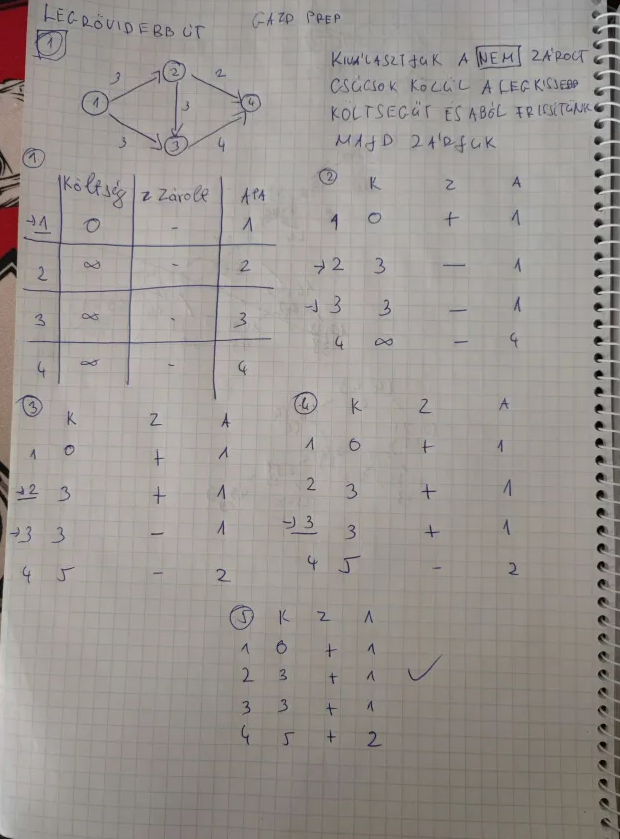 LEGRÖVIDEBB ÚT GAZD PREP
1
KIVÁLASZTJUK A NEM ZÁROLT
CSÚCSOK KÖZÜL A LEGKISSEBB
KÖLTSÉGŰT ÉS ABÓL FRISSÍTÜNK
MAJD ZÁRJUK
3 2 2
1 3 4
3 3 4
1
Költség z Zárolt APA
→1 0 - 1
2 ∞ - 2
3 ∞ - 3
4 ∞ - 4
2 K Z A
1 0 + 1
→2 3 - 1
→3 3 - 1
4 ∞ - 4
3 K Z A
1 0 + 1
→2 3 + 1
→3 3 - 1
4 5 - 2
4 K Z A
1 0 + 1
2 3 + 1
→3 3 + 1
4 5 - 2
5 K Z 1
1 0 + 1
2 3 + 1 ✓
3 3 + 1
4 5 + 2